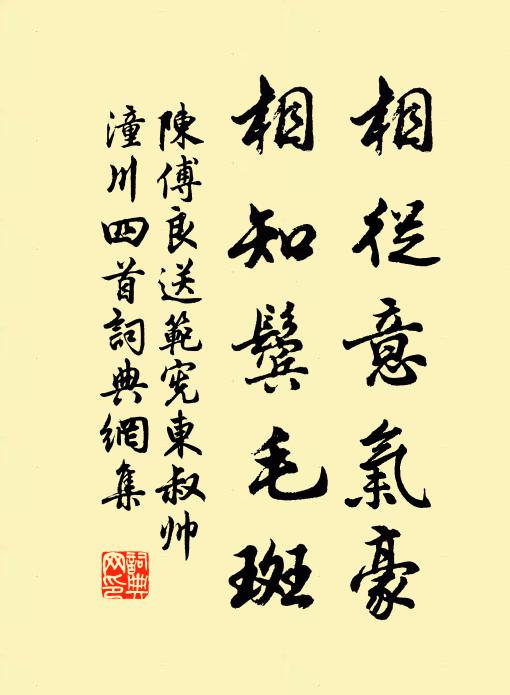 相從意氣豪
相知鬢毛斑
陳傅良送範憲東叔帥
潼川四首詞典網集
詞典網印